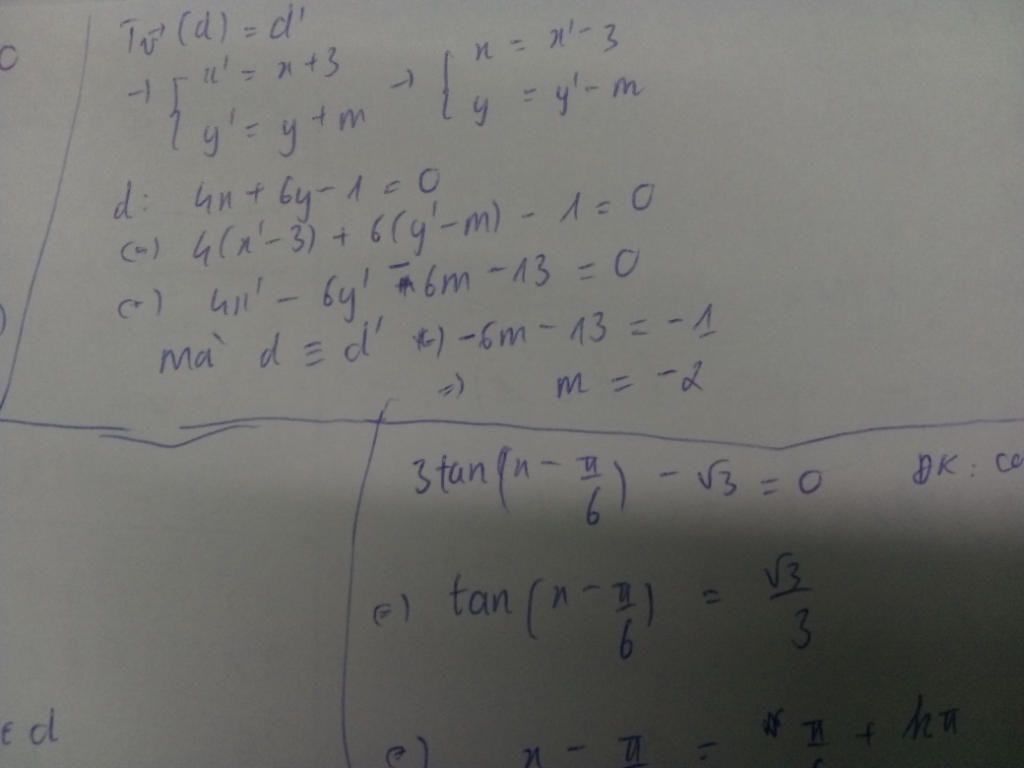 T v⃗ (d) = d'
→ { x' = x + 3 → { x = x' - 3
y' = y + m y = y' - m
d: 4x + 6y - 1 = 0
(=) 4(x' - 3) + 6(y' - m) - 1 = 0
(=) 4x' - 6y' - 6m - 13 = 0
mà d ≡ d' (=) -6m - 13 = -1
=) m = -2
3tan(x - π/6) - √3 = 0 ĐK: co
(=) tan(x - π/6) = √3/3
∈ d
(=) x - π = π + kπ